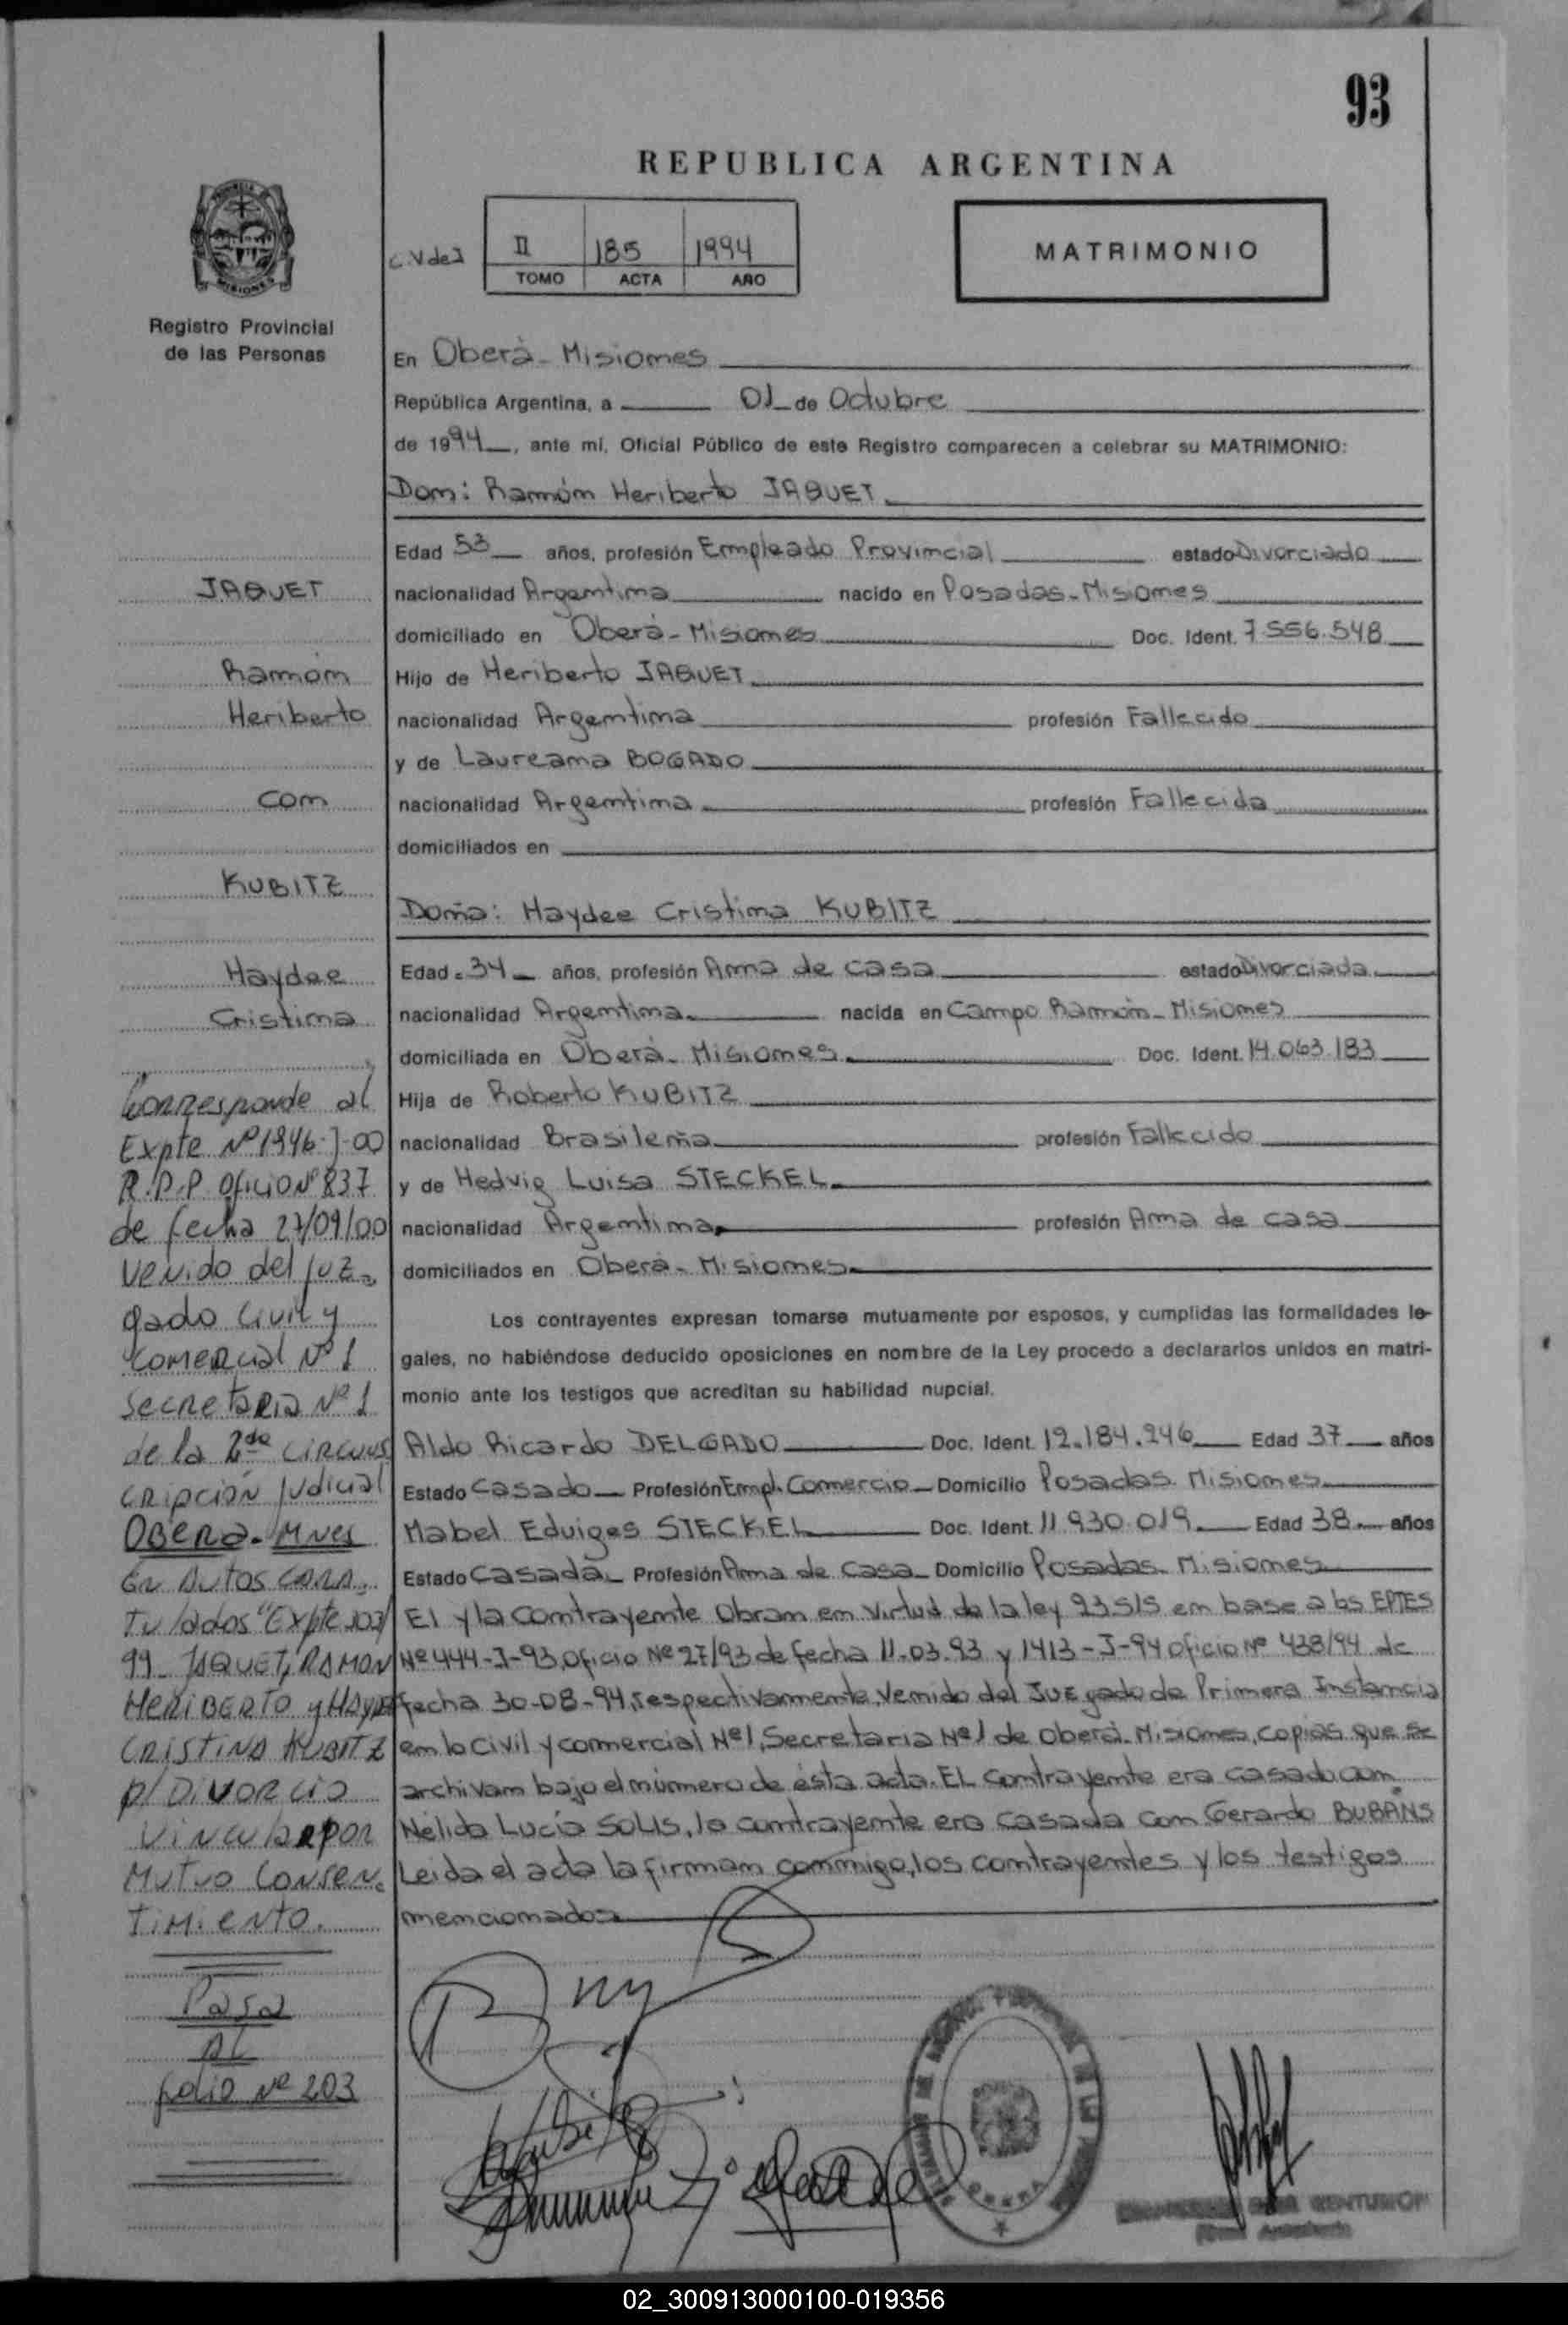 93
REPUBLICA ARGENTINA
MISIONES
Registro Provincial
de las Personas
II 185 1994
TOMO ACTA AÑO
MATRIMONIO
En Oberá - Misiones
República Argentina, a 01 de Octubre
de 1994, ante mí, Oficial Público de este Registro comparecen a celebrar su MATRIMONIO:
Don: Ramón Heriberto JAQUET
Edad 53 años, profesión Empleado Provincial estado Divorciado
nacionalidad Argentina nacido en Posadas - Misiones
domiciliado en Oberá - Misiones Doc. Ident. 7.556.548
Hijo de Heriberto JAQUET
nacionalidad Argentina profesión Fallecido
y de Laureana BOGADO
nacionalidad Argentina profesión Fallecida
domiciliados en
Doña: Haydee Cristina KUBITZ
Edad 34 años, profesión Ama de casa estado Divorciada
nacionalidad Argentina nacida en Campo Ramón - Misiones
domiciliada en Oberá - Misiones Doc. Ident. 14.063.183
Hija de Roberto KUBITZ
nacionalidad Brasileña profesión Fallecido
y de Hedvig Luisa STECKEL
nacionalidad Argentina profesión Ama de casa
domiciliados en Oberá - Misiones
Los contrayentes expresan tomarse mutuamente por esposos, y cumplidas las formalidades le-
gales, no habiéndose deducido oposiciones en nombre de la Ley procedo a declararlos unidos en matri-
monio ante los testigos que acreditan su habilidad nupcial.
Aldo Ricardo DELGADO Doc. Ident. 12.184.246 Edad 37 años
Estado Casado Profesión Empl. Comercio Domicilio Posadas - Misiones
Mabel Eduiges STECKEL Doc. Ident. 11.930.019 Edad 38 años
Estado Casada Profesión Ama de Casa Domicilio Posadas - Misiones
El y la contrayente Obran en virtud de la ley 23.515 en base a los EPTES
Nº 444-J-93 Oficio Nº 27/93 de fecha 11-03-93 y 1413-J-94 Oficio Nº 438/94 de
fecha 30-08-94, respectivamente, Venido del Juzgado de Primera Instancia
en lo Civil y comercial Nº1, Secretaria Nº1 de Oberá - Misiones, copias que se
archivan bajo el número de ésta acta. EL contrayente era casado con
Nélida Lucía SOLIS, la contrayente era casada con Gerardo BUBANS
Leida el acta la firman conmigo, los contrayentes y los testigos
mencionados
JAQUET
Ramón
Heriberto
con
KUBITZ
Haydee
Cristina
Corresponde al
Expte Nº 1946-J-00
R.P.P Oficio Nº 837
de fecha 27/09/00
Venido del Juz-
gado Civil y
Comercial Nº 1
Secretaria Nº 1
de la 2da Circuns
cripción Judicial
OBERA - Mnes
En Autos Cara-
tulados "Expte 203/
99 - JAQUET, RAMON
HERIBERTO y HAYDEE
CRISTINA KUBITZ
p/ DIVORCIO
Vincular por
Mutuo Consen-
timiento.
Pasa
AL
folio Nº 203
OBERA
02_300913000100-019356